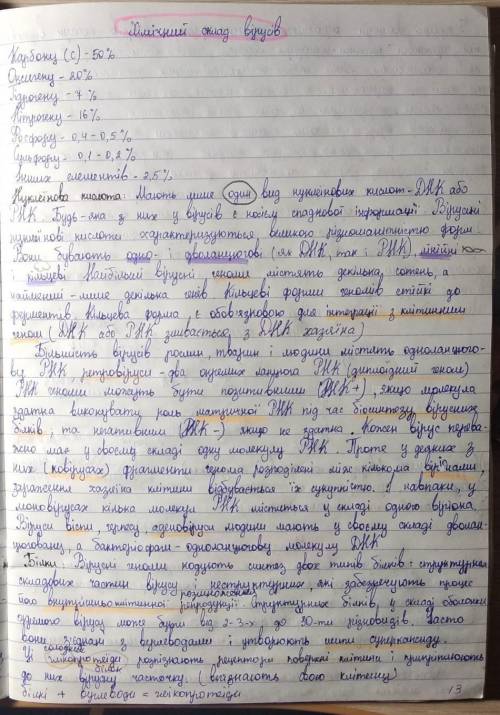 Хімічний склад вірусів
Карбону (С) - 50%
Оксигену - 20%
Гідрогену - 7%
Нітрогену - 16%
Фосфору - 0,4 - 0,5%
Сульфору - 0,1 - 0,2%
Інших елементів - 2,5%
Нуклеїнова кислота: Мають лише один вид нуклеїнових кислот - ДНК або
РНК. Будь-яка з них у вірусів є носієм спадкової інформації. Вірусні
нуклеїнові кислоти характеризуються великою різноманітністю форм.
Вони бувають одно- і дволанцюгові (як ДНК, так і РНК), лінійні
і кільцеві. Найбільші вірусні геноми містять декілька сотень, а
найменші - лише декілька генів. Кільцеві форми геномів стійкі до
ферментів. Кільцева форма є обов'язковою для інтеграції з клітинним
геном (ДНК або РНК зшивається з ДНК хазяїна)
Більшість вірусів рослин, тварин і людини містять одноланцюго-
ву РНК, ретровіруси - два окремих ланцюга РНК (диплоїдний геном)
РНК геноми можуть бути позитивними (РНК+), якщо молекула
здатна виконувати роль матричної РНК під час біосинтезу вірусних
білків, та негативним (РНК-) якщо не здатна. Кожен вірус перева-
жно має у своєму складі одну молекулу РНК. Проте з деяких з
них (ковірусах) фрагменти генома розподілені між кількома віріонами,
зараження хазяїна клітини відбувається їх сукупністю. І навпаки, у
моновірусах кілька молекул РНК міститься у складі одного віріона.
Віруси віспи, герпесу, аденовіруси людини мають у своєму складі дволан-
цюговану, а бактеріофаги - одноланцюгову молекулу ДНК
Білки: Вірусні геноми кодують синтез двох типів білків: структурних
складових частин вірусу і неструктурних, які забезпечують процес
його внутрішньоклітинної репродукції. Структурних білків, у складі оболонки
зрілого вірусу може бути від 2-3-х до 30-ти різновидів. Часто
вони з'єднані з вуглеводами і утворюють шипи суперкапсиду.
Ці глікопротеїди розпізнають рецептори поверхні клітини і прикріплюють
до них вірусну часточку. (впізнають свою клітину)
білкі + вуглеводи = глікопротеїди
13